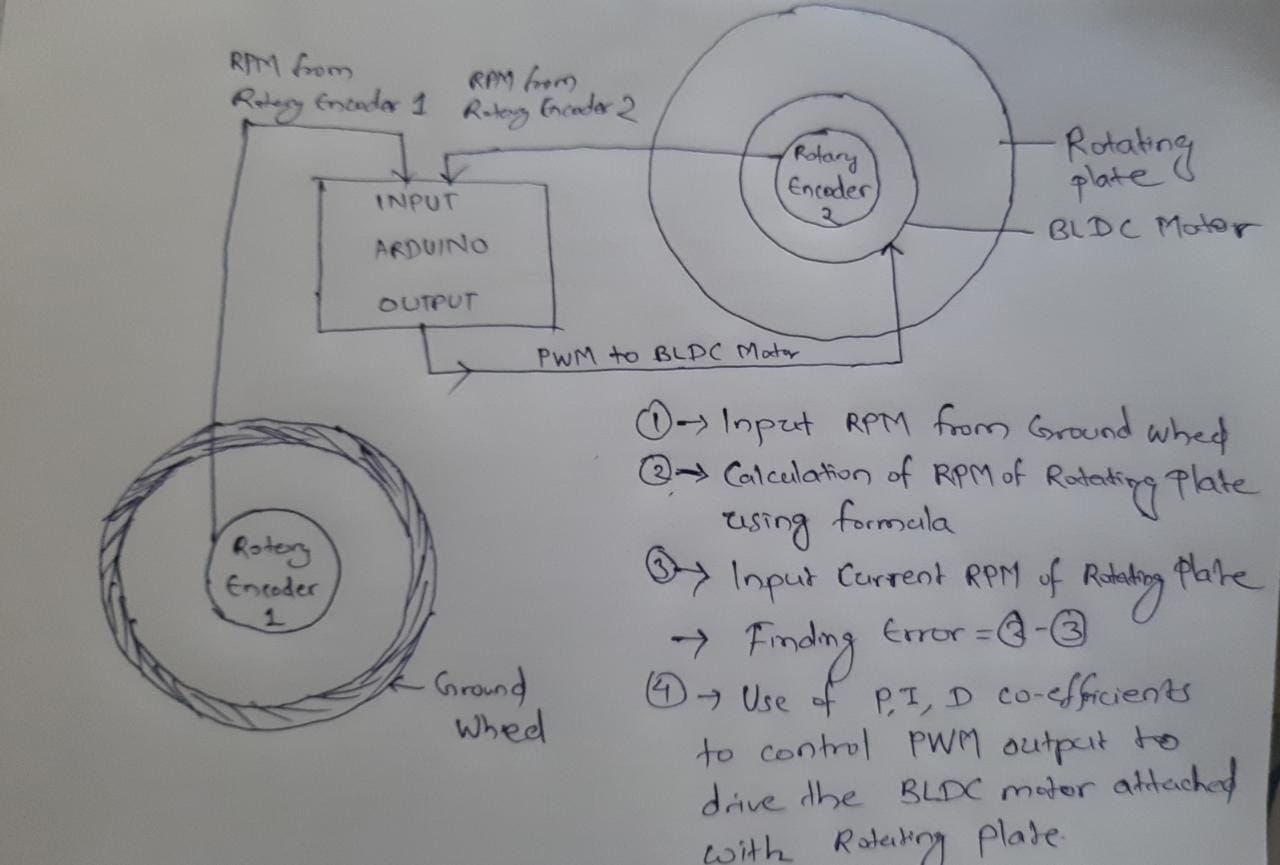 RPM from
Rotary Encoder 1
RPM from
Rotary Encoder 2
INPUT
ARDUINO
OUTPUT
Rotary
Encoder
2
Rotating
plate
BLDC Motor
PWM to BLDC Motor
Rotary
Encoder
1
Ground
Wheel
① → Input RPM from Ground wheel
② → Calculation of RPM of Rotating Plate
using formula
③ → Input Current RPM of Rotating Plate
→ Finding Error = ② - ③
④ → Use of P, I, D co-efficients
to control PWM output to
drive the BLDC motor attached
with Rotating Plate.